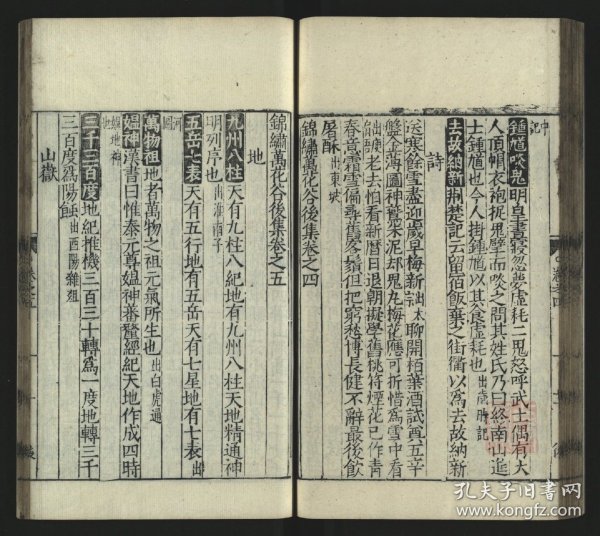 中記
鍾馗啖鬼 明皇晝寢忽夢虛耗二鬼怒呼武士偶有大
人頂帽衣袍捉鬼劈而啖之問其姓氏乃曰終南山進
士鍾馗也今人掛鍾馗以其食虛耗也 出歲時記
去故納新 荆楚記云留宿飯棄之街衢以爲去故納新
詩
送寒餘雪盡迎歲早梅新 聊開栢葉酒試奠五辛
盤金薄圖神鷰朱泥却鬼丸梅花應可折惜爲雪中看
老去怕看新曆日退朝擬學舊桃符煙花已作青
春意霜雪偏尋舊客鬚但把窮愁博長健不辭最後飲
屠酥 出東坡
錦繡萬花谷後集卷之四
錦繡萬花谷後集卷之五
地
九州八柱 天有九柱八紀地有九州八柱天地精通神
明列序也 出淮南子
五岳七表 天有五行地有五岳天有七星地有七表 出
河圖
萬物祖 地者萬物之祖元氣所生也 出白虎通
媼神 漢書曰惟泰元尊媼神蕃釐經紀天地作成四時
媼地神也
三千三百度 地紀推機三百三十轉爲一度地轉三千
三百度爲陽蝕 出酉陽雜俎
山嶽
孔夫子旧书网
www.kongfz.com